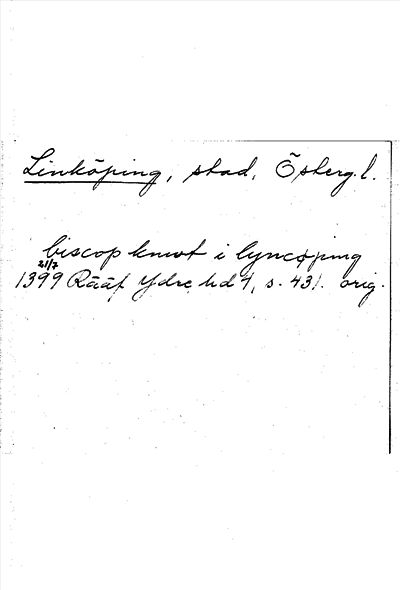 Linköping, stad, Österg. l.
biscop knwt i lyncøping
21/7
1399 Rääf Ydre hd 1, s. 431. orig.